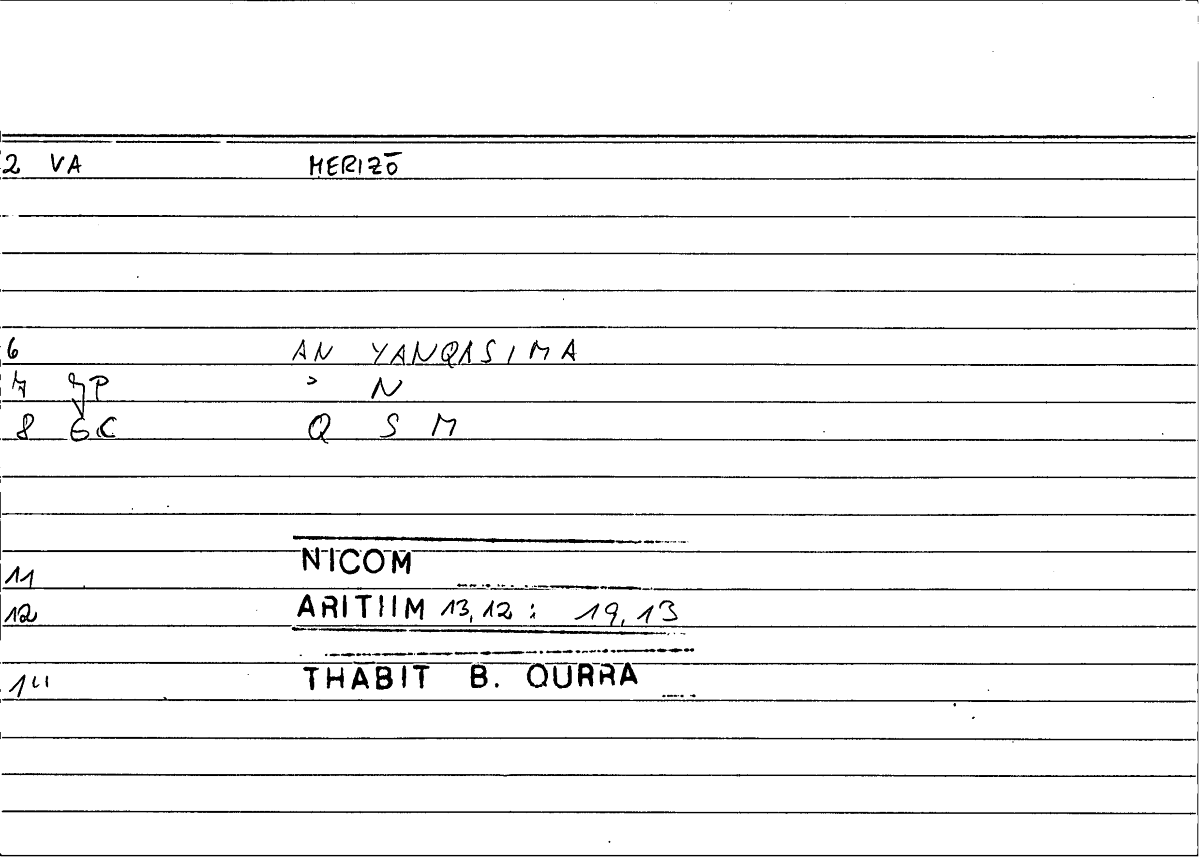 2 VA MERIZŌ
6 AN YANQASIMA
7 P > N
8 GC Q S M
NICOM
11
12 ARITIIM 13,12 : 19,13
THABIT B. QURRA
14